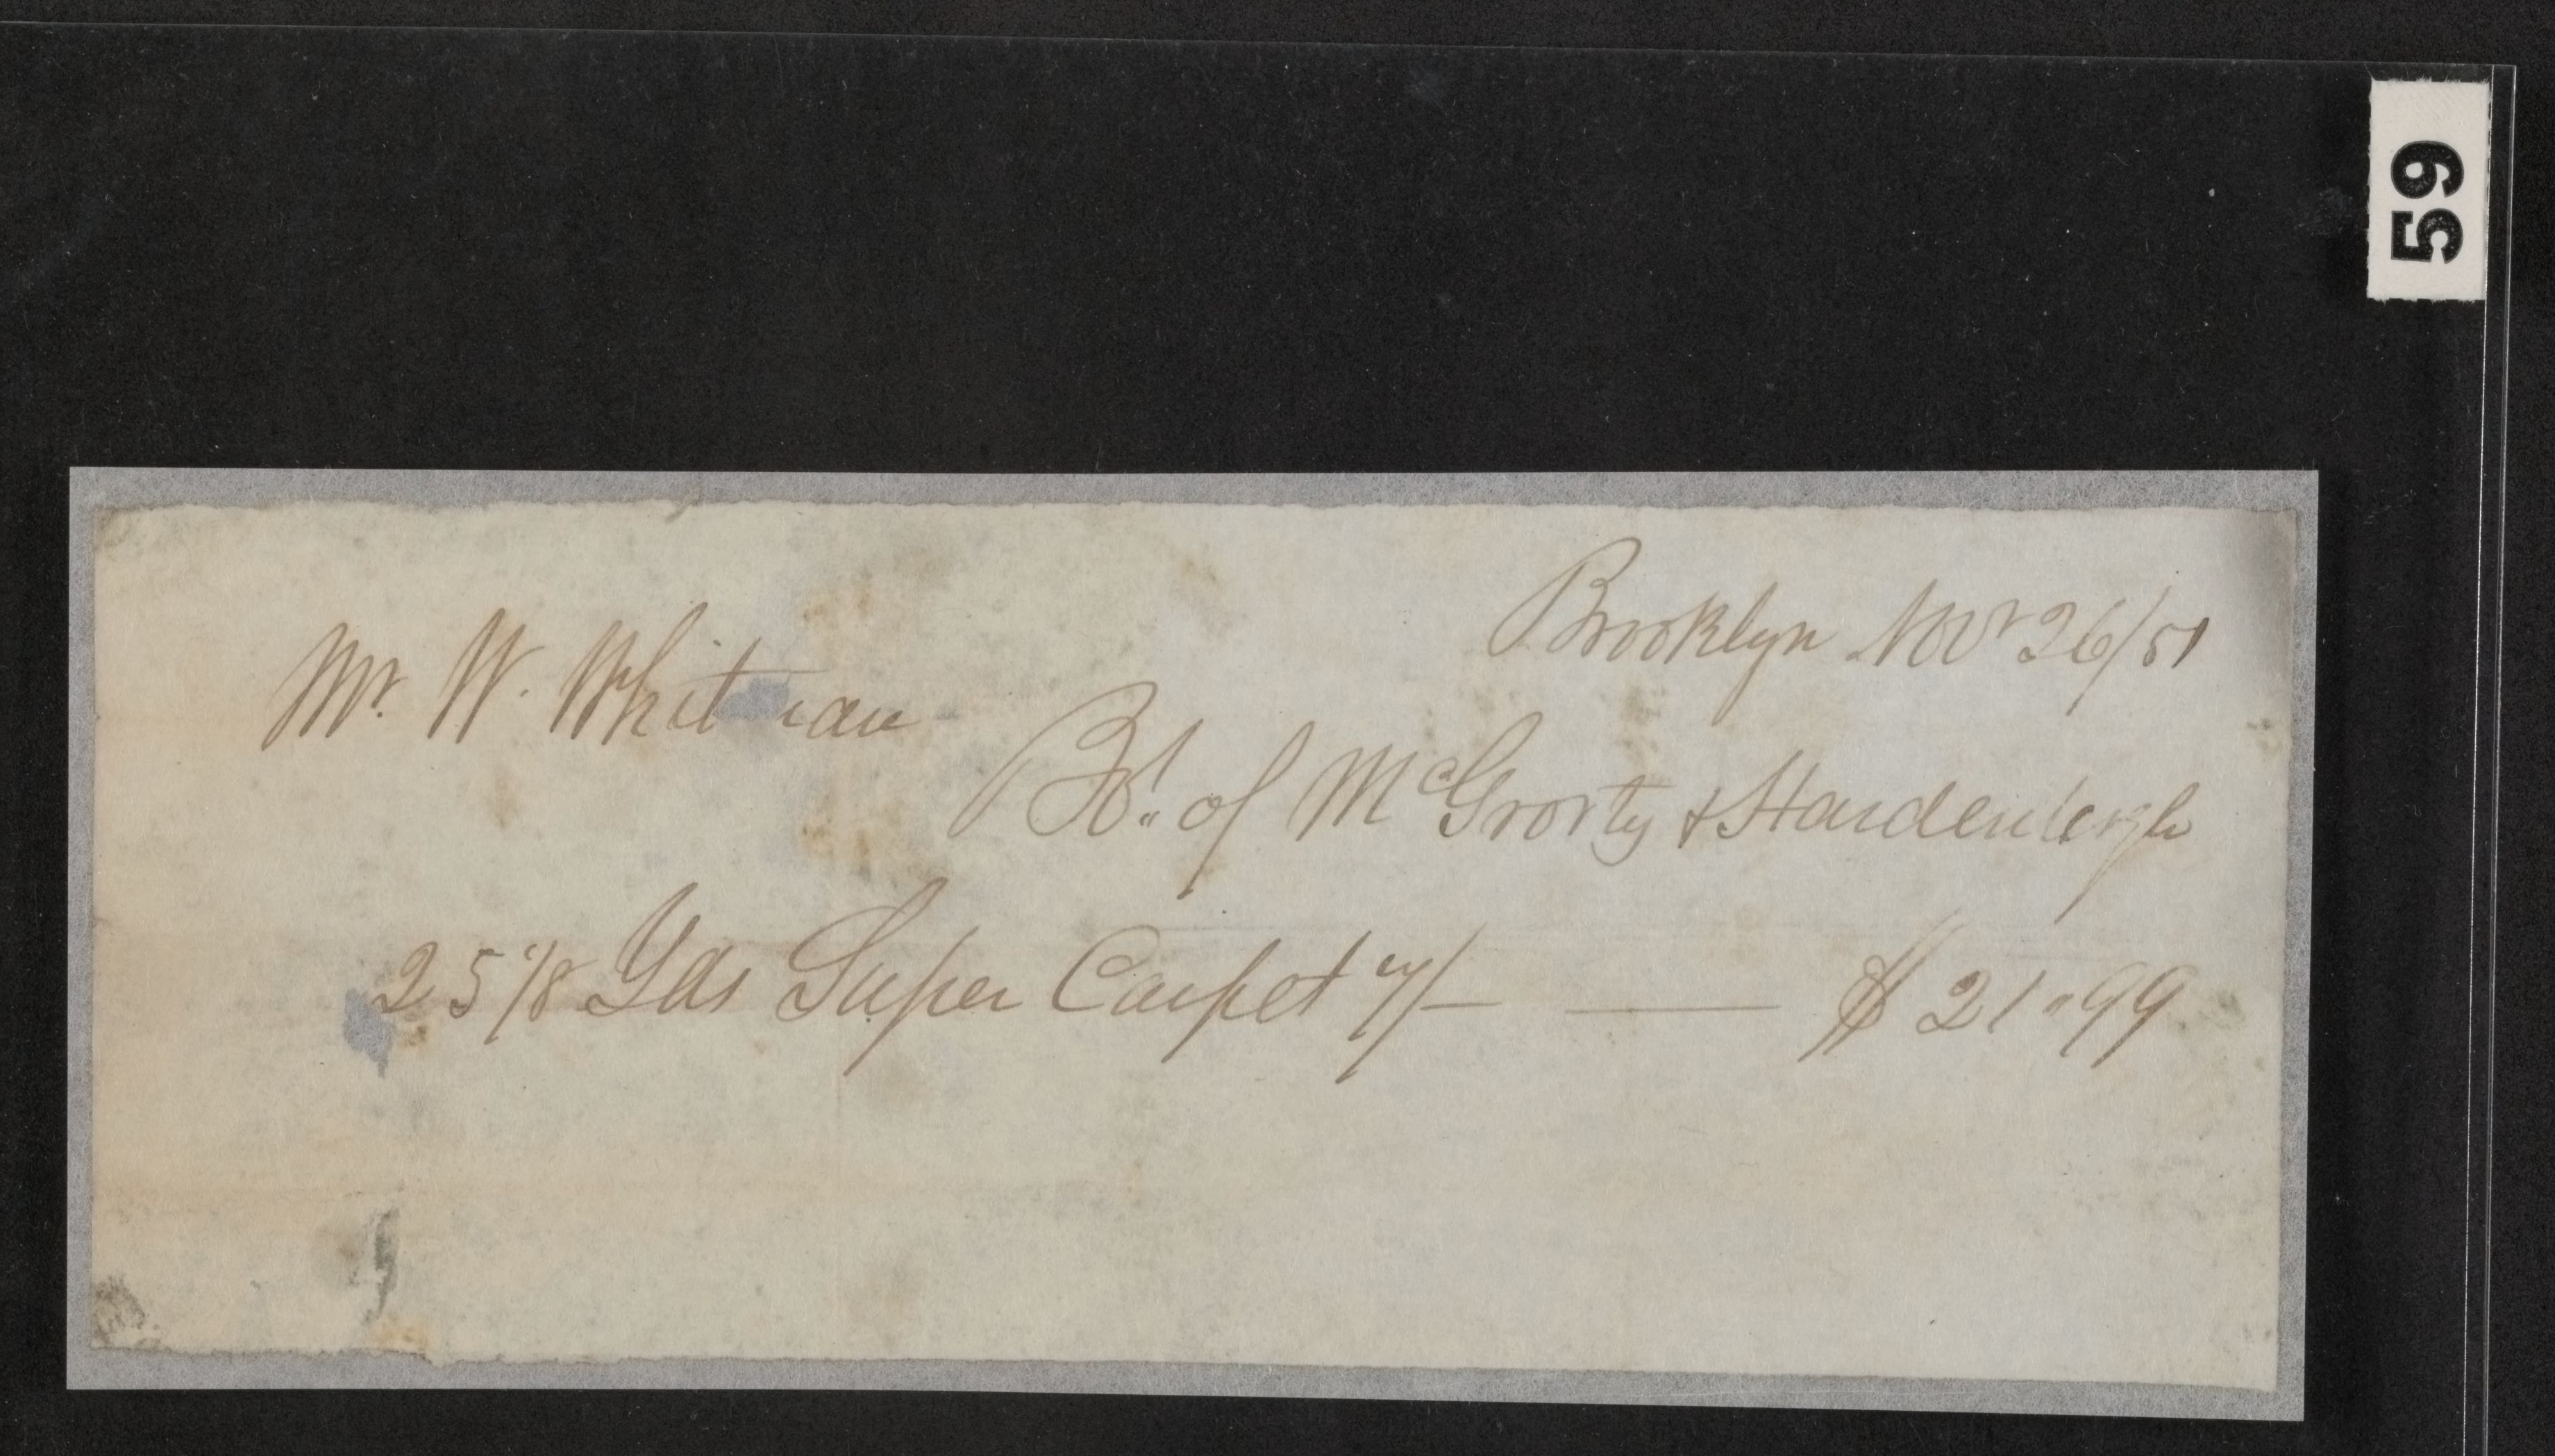 59
Brooklyn Novr 26/51
Mr. W. Whitman
Bot. of McGrorty & Hardenbergh
25 1/8 Yds Super Carpet 7/— — $21.99